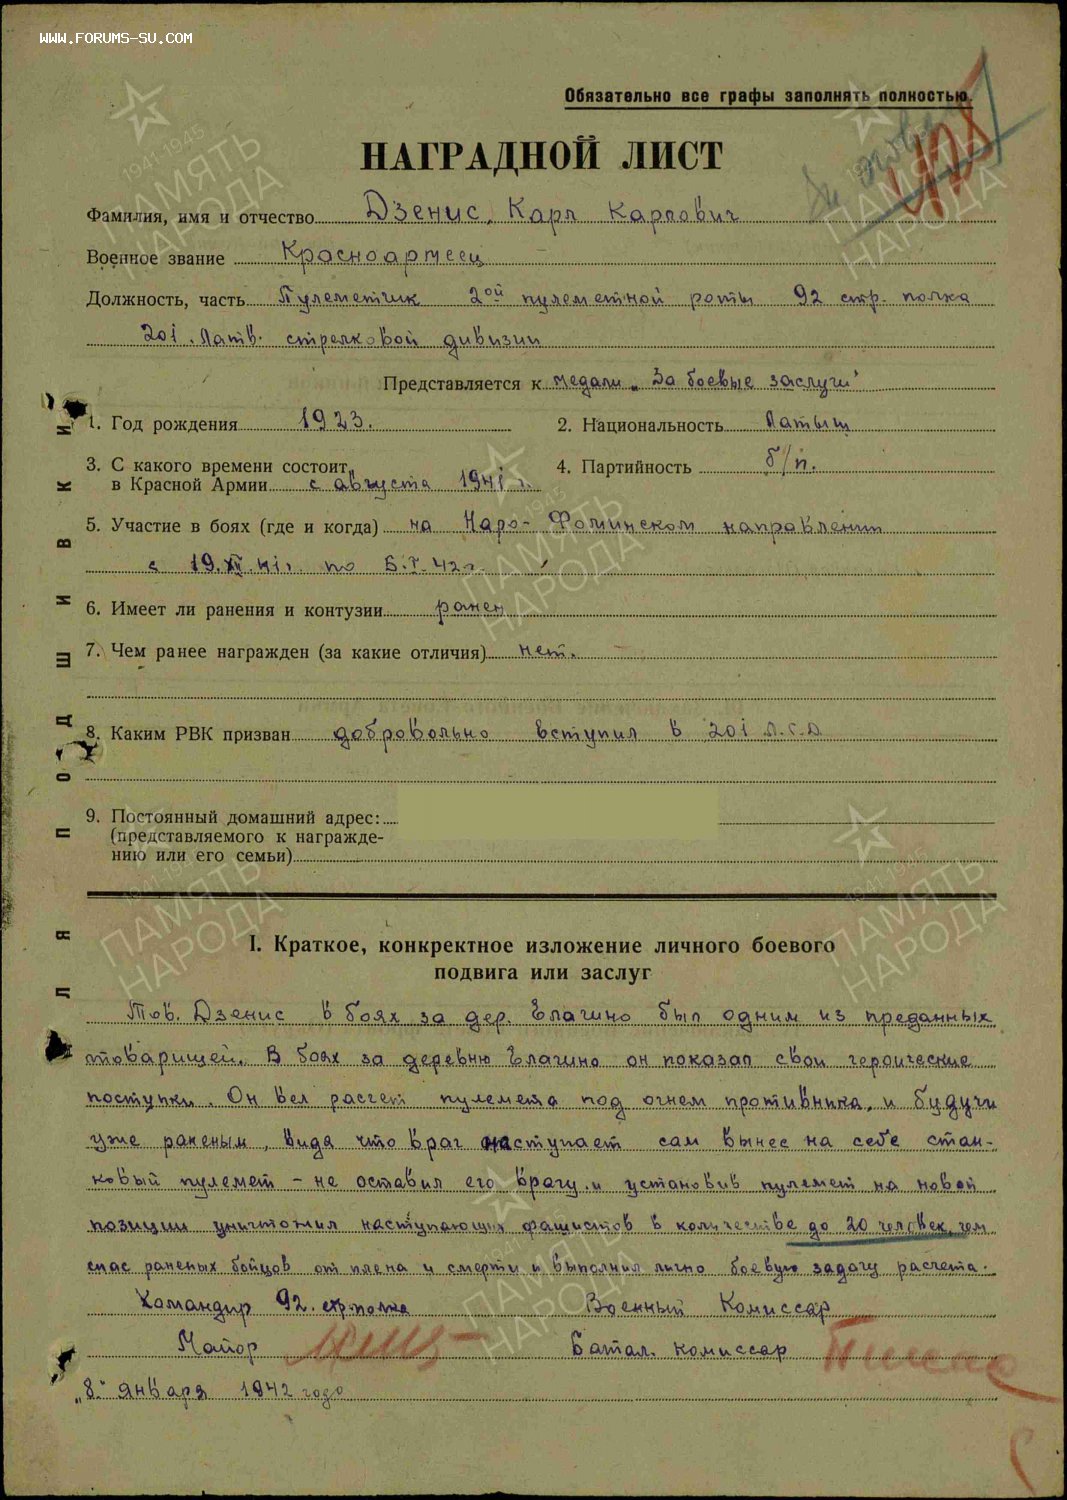 WWW.FORUMS-SU.COM
Обязательно все графы заполнять полностью.
НАГРАДНОЙ ЛИСТ
Фамилия, имя и отчество Дзенис, Карл Карлович
Военное звание Красноармеец
Должность, часть Пулеметчик 2ой пулеметной роты 92 стр. полка
201. Латв. стрелковой дивизии
Представляется к медали „За боевые заслуги"
1. Год рождения 1923.
2. Национальность Латыш
3. С какого времени состоит
в Красной Армии с августа 1941 г.
4. Партийность б/п.
5. Участие в боях (где и когда) на Наро-Фоминском направлении
с 19.XII.41г. по 5.I.42г.
6. Имеет ли ранения и контузии ранен
7. Чем ранее награжден (за какие отличия) нет.
8. Каким РВК призван добровольно вступил в 201 Л.С.Д
9. Постоянный домашний адрес:
(представляемого к награжде-
нию или его семьи)
ДЛЯ ПОДШИВКИ
I. Краткое, конкректное изложение личного боевого
подвига или заслуг
Тов. Дзенис в боях за дер. Елагино был одним из преданных
товарищей. В боях за деревню Елагино он показал свои героические
поступки. Он вел расчет пулемета под огнем противника, и будучи
уже раненым, видя что враг наступает сам вынес на себе стан-
ковый пулемет – не оставил его врагу и установив пулемет на новой
позиции уничтожил наступающих фашистов в количестве до 20 человек, чем
спас раненых бойцов от плена и смерти и выполнил лично боевую задачу расчета.
Командир 92. стр. полка Военный Комиссар
Майор Батал. комиссар
„8." января 1942 года
ПАМЯТЬ НАРОДА
1941-1945